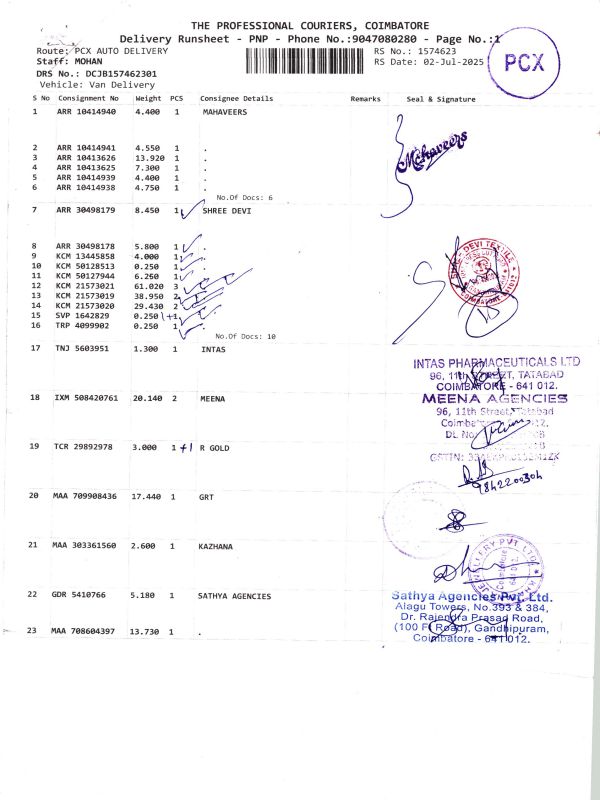 THE PROFESSIONAL COURIERS, COIMBATORE
Delivery Runsheet - PNP - Phone No.:9047080280 - Page No.:1
Route: PCX AUTO DELIVERY
RS No.: 1574623
Staff: MOHAN
RS Date: 02-Jul-2025
PCX
DRS No.: DCJB157462301
Vehicle: Van Delivery
S No Consignment No Weight PCS Consignee Details Remarks Seal & Signature
1 ARR 10414940 4.400 1 MAHAVEERS
Mahaveers
2 ARR 10414941 4.550 1 .
3 ARR 10413626 13.920 1 .
4 ARR 10413625 7.300 1 .
5 ARR 10414939 4.400 1 .
6 ARR 10414938 4.750 1 .
No.Of Docs: 6
7 ARR 30498179 8.450 1 SHREE DEVI
8 ARR 30498178 5.800 1 .
9 KCM 13445858 4.000 1 .
10 KCM 50128513 0.250 1 .
11 KCM 50127944 6.250 1 .
12 KCM 21573021 61.020 3
13 KCM 21573019 38.950 2
14 KCM 21573020 29.430 2
15 SVP 1642829 0.250 1+1
16 TRP 4099902 0.250 1
No.Of Docs: 10
DEVI TEXTILE
COIMBATORE 641012
17 TNJ 5603951 1.300 1 INTAS
INTAS PHARMACEUTICALS LTD
96, 11th STREET, TATABAD
COIMBATORE - 641 012.
18 IXM 508420761 20.140 2 MEENA
MEENA AGENCIES
96, 11th Street, Tatabad
DL No
GSTIN:
19 TCR 29892978 3.000 1 +1 R GOLD
9842200304
20 MAA 709908436 17.440 1 GRT
21 MAA 303361560 2.600 1 KAZHANA
JEWELLERY PVT. LTD.
Coimbatore
641 012.
22 GDR 5410766 5.180 1 SATHYA AGENCIES
Sathya Agencies Pvt. Ltd.
Alagu Towers, No.393 & 384,
Dr. Rajendra Prasad Road,
(100 Ft Road), Gandhipuram,
Coimbatore - 641 012.
23 MAA 708604397 13.730 1 .